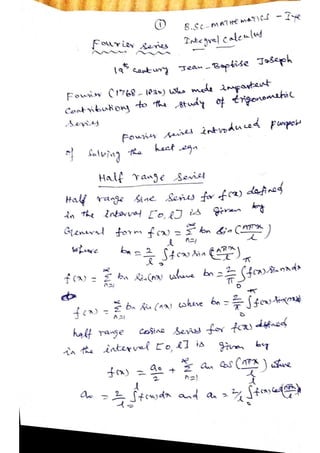 ①
B.Sc - MATHEMATICS - Iye
Integral Calculus
Fourier Series
19th century Jean-Baptise Joseph
Fourier (1768 - 1830) Who made important
Contributions to the study of trigonometric
Series
Fourier series introduced purpose
of solving the heat eqn.
Half range Series
Half range sine Series for f(x) defined
in the interval [0, l] is given by
General form f(x) = ∞Σn=1 bn sin (nπx/l)
where bn = 2/l ∫₀ˡ f(x) sin (nπx/l)
f(x) = ∞Σn=1 bn sin(nx) where bn = 2/π ∫₀^π f(x) sin nx dx
f(x) = ∞Σn=1 bn sin(nx) where bn = 2/π ∫₀^π f(x) sin(nx)
half range cosine Series for f(x) defined
in the interval [0, l] is given by
f(x) = a₀/2 + ∞Σn=1 an cos (nπx/l) where
a₀ = 2/l ∫₀ˡ f(x)dx and an = 2/l ∫₀ˡ f(x) cos(nπx/l)